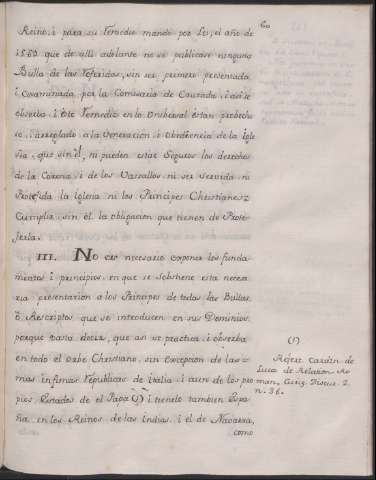 60
Reino, i para su remedio mandó por Lei, el año de
1569 que de alli adelante no se publicase ninguna
Bulla de las referidas, sin ser primero presentada
i examinada por la Comisaria de Cruzada. i asi se
observa i este remedio en lo Universal es tan
i arreglado a la Veneracion i Obediencia de la Igle
sia, que sin él, ni pueden estar seguros los derechos
de la Corona, i de los Vassallos ni ser servida ni
Protegida la Iglesia ni los Principes Christianos
Cumplir, sin él la obligacion que tienen de Prote-
jerla.
III. No es necesario exponer los funda-
mentos i principios, en que se sobstiene esta necesa
ria presentacion a los Principes de todas las Bullas,
ò Rescriptos que se introducen en sus Dominios,
porque basta decir, que asi se practica i observa
en todo el Orbe Christiano, sin excepcion de las
mas infimas Republicas de Italia, i aun de los pro
pios Estados de el Papa (1) i tienelo tambien Espa
ña, en los Reinos de las Indias, i el de Navarra,
como
(1)
Refert Cardin. de
Luca de Relation. Ro
man. Discur. 2.
n. 36.